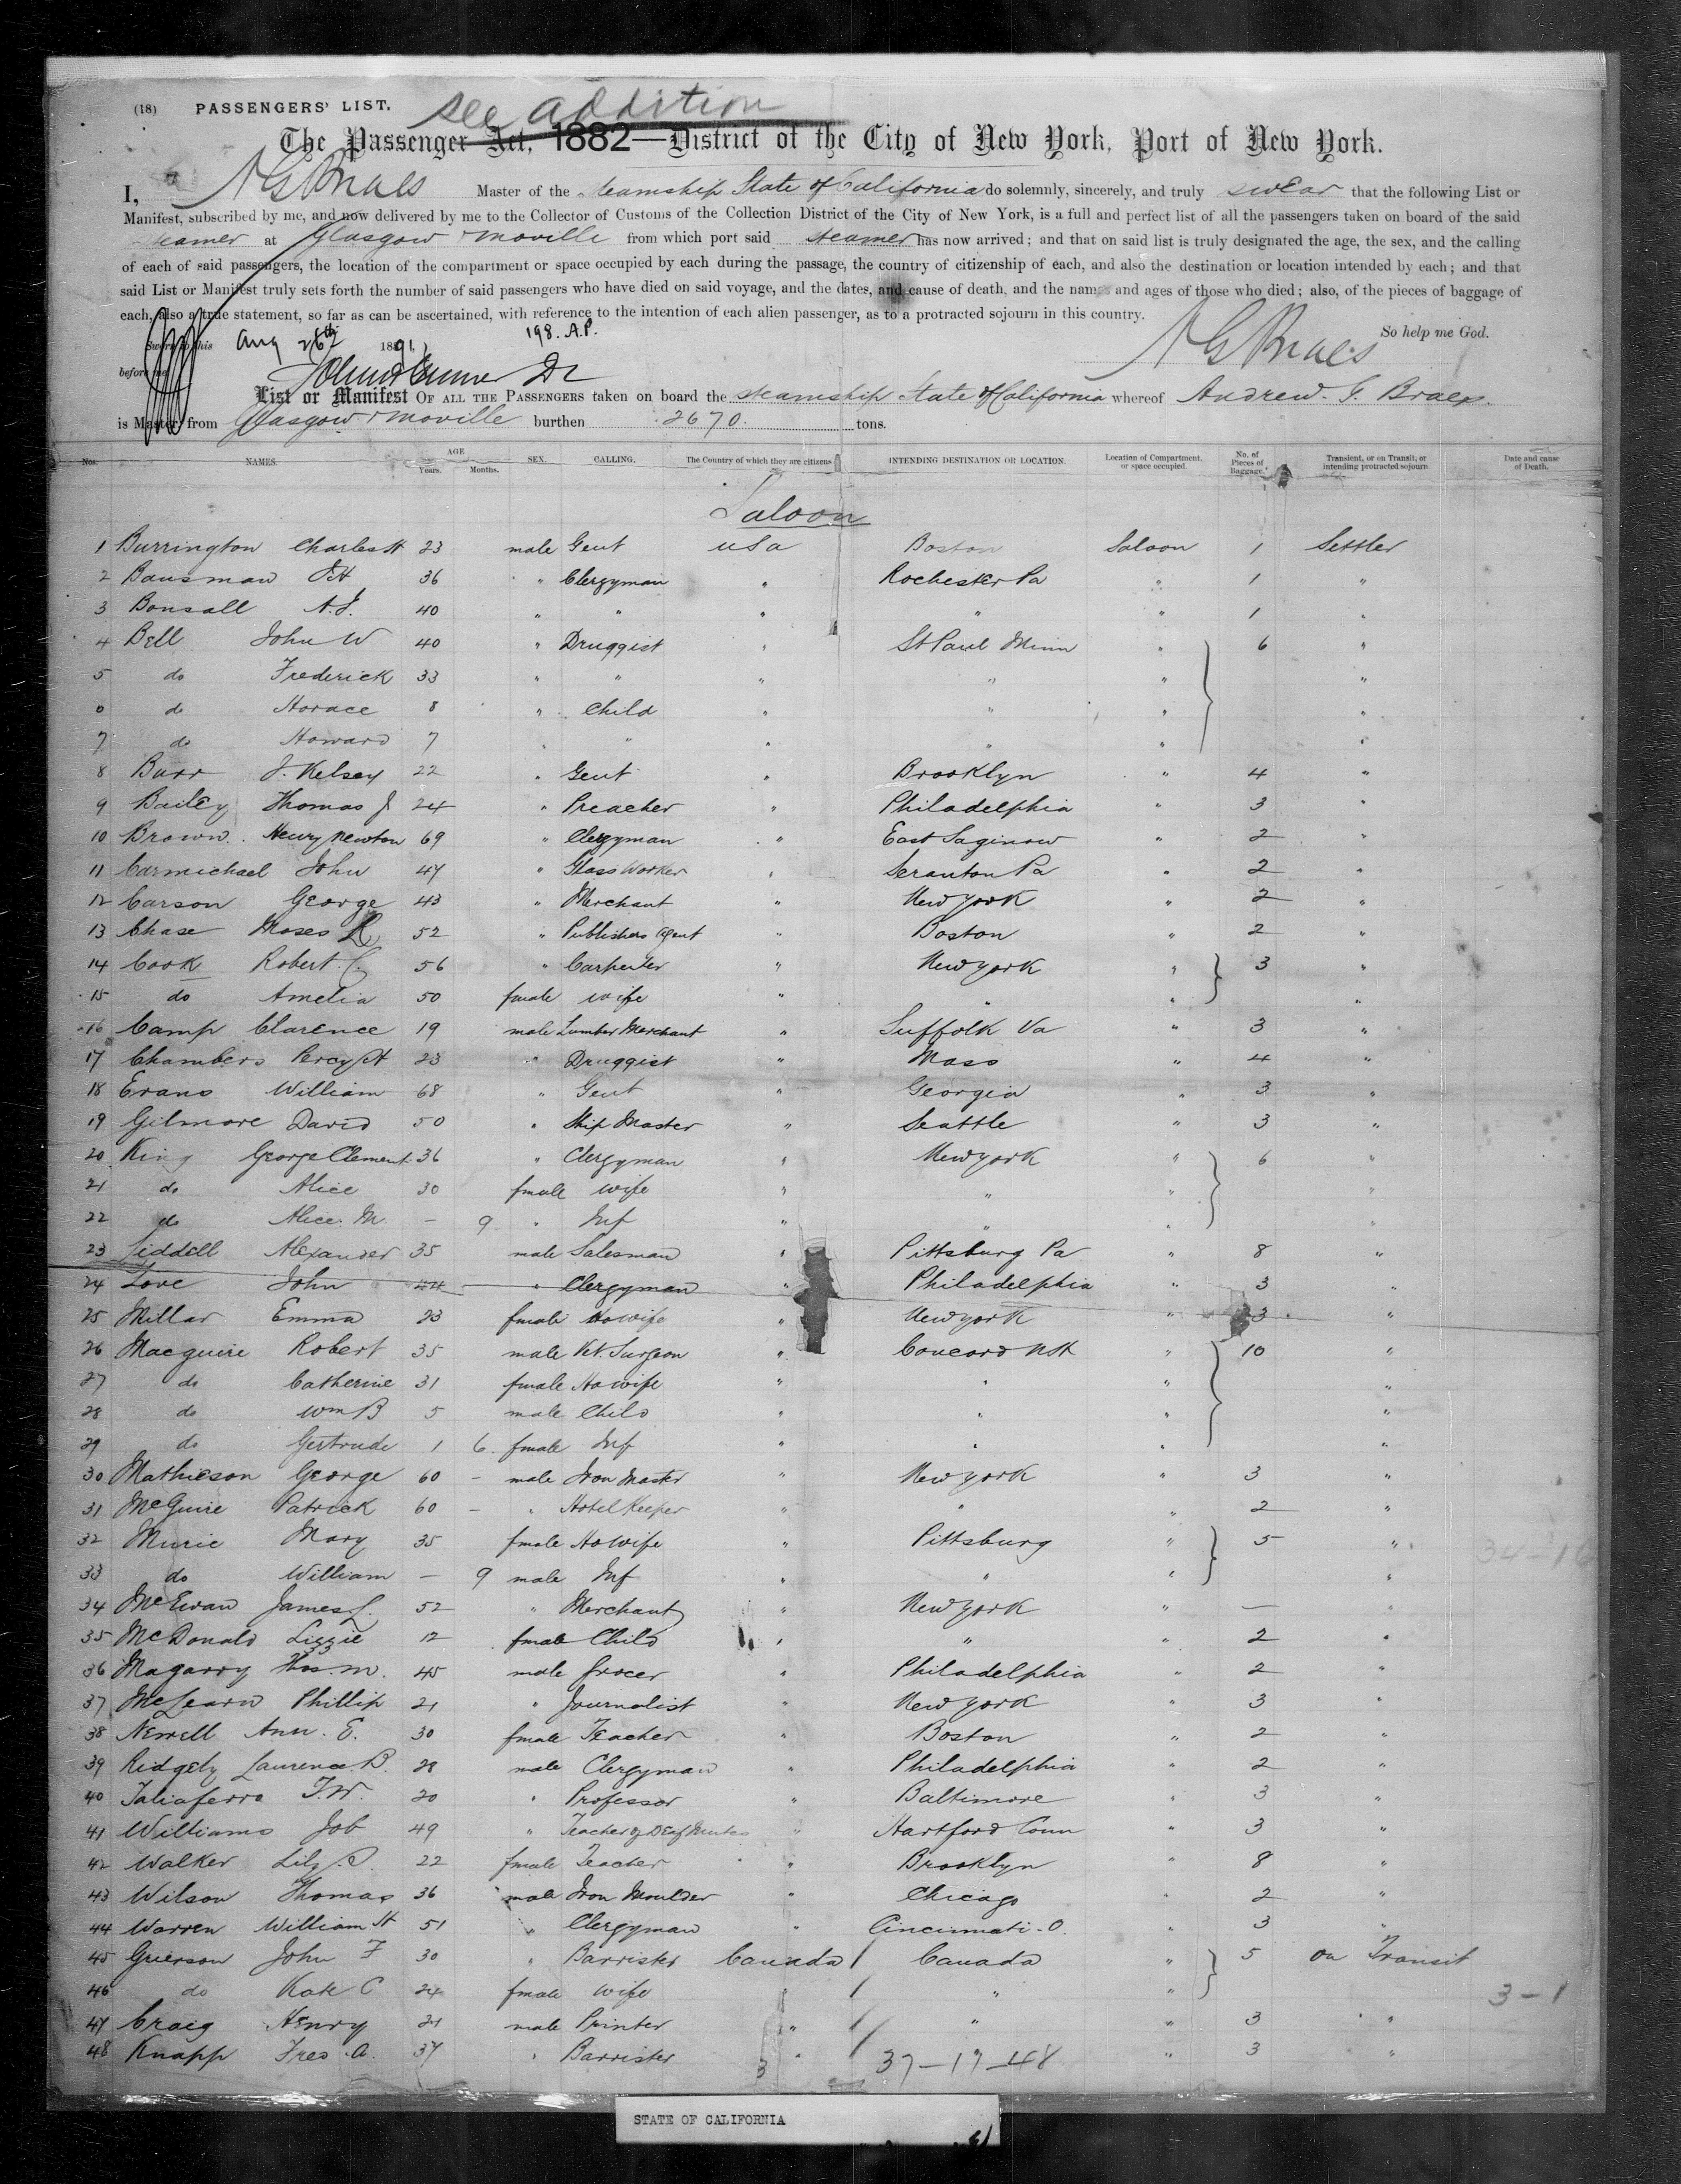 see addition
(18) PASSENGERS' LIST.
The Passenger Act, 1882—District of the City of New York, Port of New York.
I, A G Braes Master of the Steamship State of California do solemnly, sincerely, and truly swear that the following List or
Manifest, subscribed by me, and now delivered by me to the Collector of Customs of the Collection District of the City of New York, is a full and perfect list of all the passengers taken on board of the said
steamer at Glasgow & Moville from which port said steamer has now arrived; and that on said list is truly designated the age, the sex, and the calling
of each of said passengers, the location of the compartment or space occupied by each during the passage, the country of citizenship of each, and also the destination or location intended by each; and that
said List or Manifest truly sets forth the number of said passengers who have died on said voyage, and the dates, and cause of death, and the names and ages of those who died; also, of the pieces of baggage of
each, also a true statement, so far as can be ascertained, with reference to the intention of each alien passenger, as to a protracted sojourn in this country.
So help me God.
Sworn to this Aug 26th 1891, 198. A.P. A G Braes
before me
List or Manifest OF ALL THE PASSENGERS taken on board the steamship State of California whereof Andrew. G. Braes.
is Master, from Glasgow & Moville burthen 2670. tons.
Nos. NAMES. AGE Years. Months. SEX. CALLING. The Country of which they are citizens INTENDING DESTINATION OR LOCATION. Location of Compartment, or space occupied. No. of Pieces of Baggage. Transient, or on Transit; or intending protracted sojourn. Date and cause of Death.
Saloon
1 Burrington Charles H 23 male Gent USA Boston Saloon 1 Settler
2 Bausman J.H 36 " Clergyman " Rochester Pa " 1 "
3 Bonsall A.J. 40 " " " " " 1 "
4 Bell John W 40 " Druggist " St Paul Minn " 6 "
5 do Frederick 33 " " " " " "
6 do Horace 8 " Child " " " "
7 do Howard 7 " " " " " "
8 Burr J. Kelsey 22 " Gent " Brooklyn " 4 "
9 Bailey Thomas J 24 " Preacher " Philadelphia " 3 "
10 Brown Henry Newton 69 " Clergyman " East Saginow " 2 "
11 Carmichael John 47 " Glass Worker " Scranton Pa " 2 "
12 Carson George 43 " Merchant " New York " 2 "
13 Chase Moses R 52 " Publishers Agent " Boston " 2 "
14 Cook Robert C. 56 " Carpenter " New York " 3 "
15 do Amelia 50 female wife " " " "
16 Camp Clarence 19 male Lumber Merchant " Suffolk Va " 3 "
17 Chambers Percy H 23 " Druggist " Mass " 4 "
18 Evans William 68 " Gent " Georgia " 3 "
19 Gilmore David 50 " Ship Master " Seattle " 3 "
20 King George Clement 36 " Clergyman " New York " 6 "
21 do Alice 30 female wife " " " "
22 do Alice. M. – 9 " Inf " " " "
23 Liddell Alexander 35 male Salesman " Pittsburg Pa " 8 "
24 Love John 44 " Clergyman " Philadelphia " 3 "
25 Millar Emma 23 female Howife " New York " 3 "
26 Macguire Robert 35 male Vet. Surgeon " Concord NH " 10 "
27 do Catherine 31 female Howife " " " "
28 do Wm B 5 male Child " " " "
29 do Gertrude 1 6 female Inf " " " "
30 Mathieson George 60 – male Iron Master " New York " 3 "
31 McGuire Patrick 60 – " Hotel Keeper " " " 2 "
32 Murie Mary 35 female Howife " Pittsburg " 5 " 34–10
33 do William – 9 male Inf " " " "
34 McEwan James L. 52 " Merchant " New York " — "
35 McDonald Lizzie 12 female Child " " " 2 "
36 Magarry Thos. M. 45 male Grocer " Philadelphia " 2 "
37 McLearn Phillip 21 " Journalist " New York " 3 "
38 Newell Ann. E. 30 female Teacher " Boston " 2 "
39 Ridgely Laurence B. 28 male Clergyman " Philadelphia " 2 "
40 Taliaferro T.W. 20 " Professor " Baltimore " 3 "
41 Williams Job 49 " Teacher of Deaf Mutes " Hartford Conn " 3 "
42 Walker Lily S. 22 female Teacher " Brooklyn " 8 "
43 Wilson Thomas 36 male Iron Moulder " Chicago " 2 "
44 Warren William H 51 " Clergyman " Cincinnati. O. " 3 "
45 Grierson John F 30 " Barrister Canada Canada " 5 on Transit
46 do Kate C 24 female wife " " " 3–1
47 Craig Henry 21 male Printer " " " 3 "
48 Knapp Fred. A. 37 " Barrister " " 3 "
3 37–17–48
STATE OF CALIFORNIA